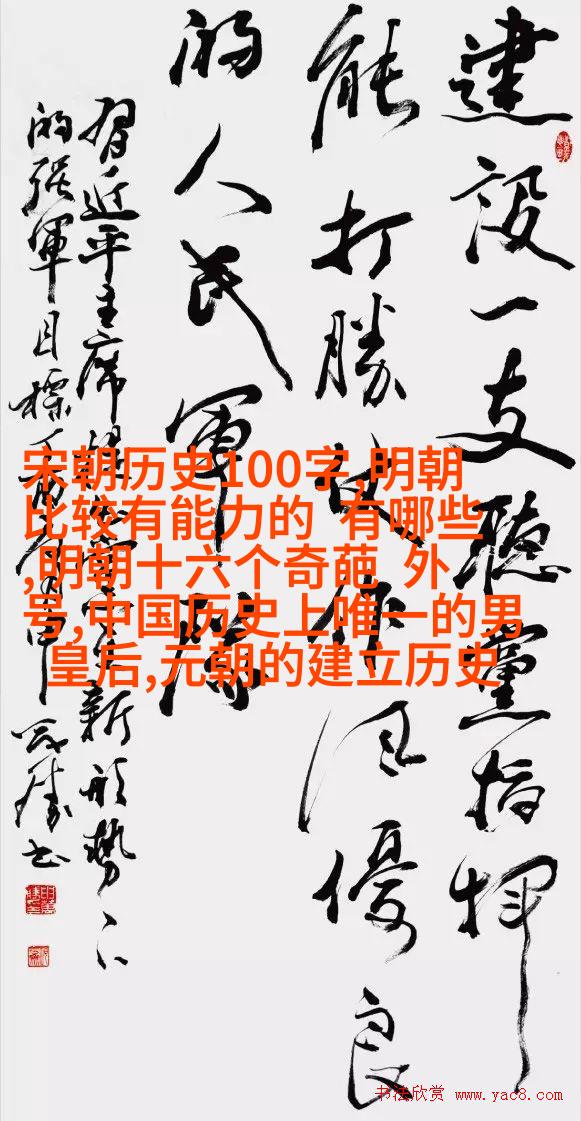 建設一支聽黨指揮
能打勝仗作風優良
的人民軍隊
習近平主席 新形勢下
的强軍目標
宋朝历史100字,明朝
比较有能力的 有哪些
,明朝十六个奇葩 外
号,中国历史上唯一的男
皇后,元朝的建立历史
书法欣赏 www.yac8.com